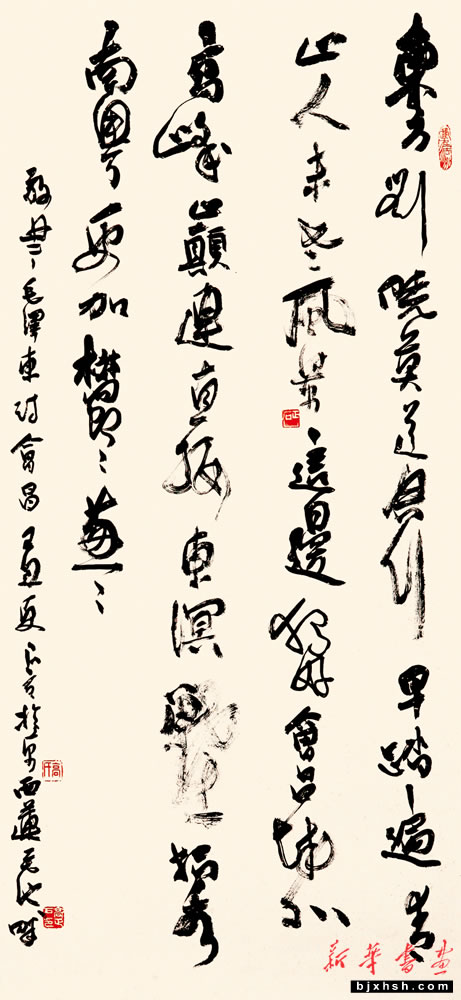 東方欲曉莫道君行早踏遍青
山人未老風景這邊獨好會昌城外
高峰巔連直接東溟戰士指看
南粵更加欝〻蔥〻
敬書毛澤東詩會昌 丁丑夏 於京西蓮花池畔
新華書畫
bjxhsh.com